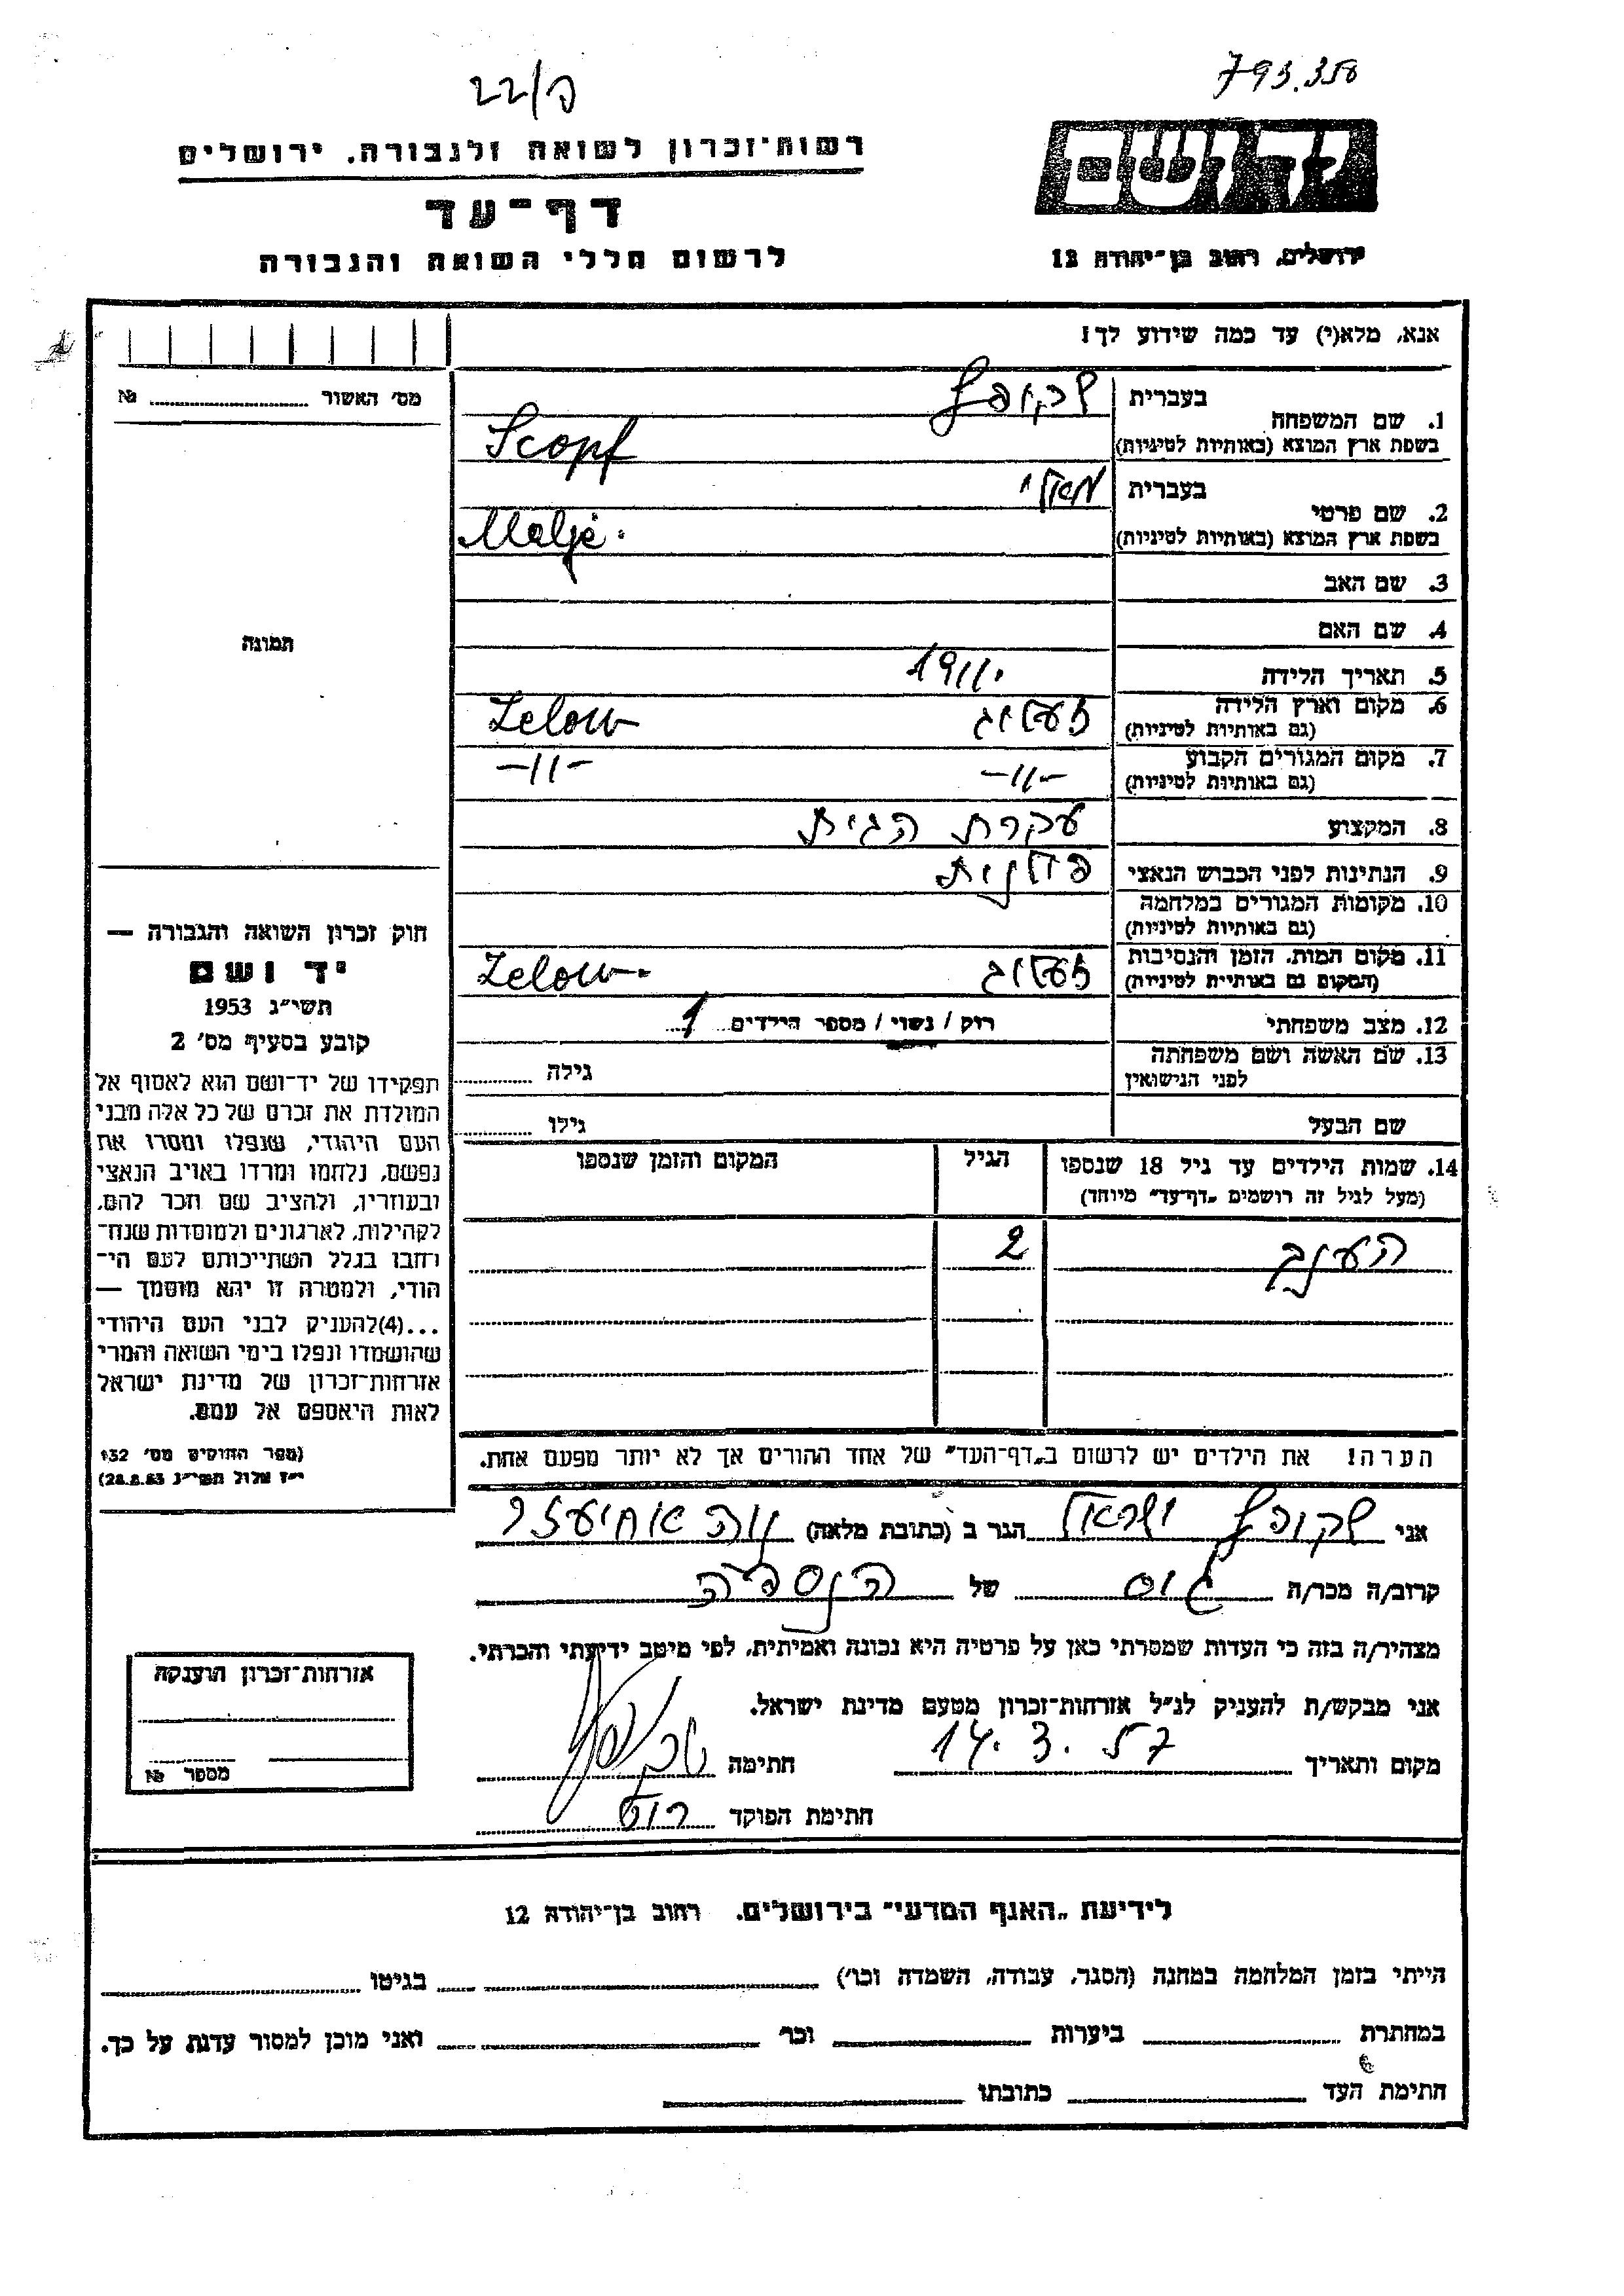 793.358
22/ב
יד ושם
רשות־זכרון לשואה ולגבורה, ירושלים
דף־עד
לרשום חללי השואה והגבורה
ירושלים, רחוב בן־יהודה 12
אנא, מלא(י) עד כמה שידוע לך!
מס׳ האשור №
1. שם המשפחה
בעברית שקופף
בשפת ארץ המוצא (באותיות לטיניות) Scopf
2. שם פרטי
בעברית מאלי
בשפת ארץ המוצא (באותיות לטיניות) Malje
3. שם האב
4. שם האם
תמונה
5. תאריך הלידה 1911
6. מקום וארץ הלידה זעלוב Zelow
(גם באותיות לטיניות)
7. מקום המגורים הקבוע -11- -11-
(גם באותיות לטיניות)
8. המקצוע עקרת הבית
9. הנתינות לפני הכבוש הנאצי פולנית
10. מקומות המגורים במלחמה
(גם באותיות לטיניות)
11. מקום המות, הזמן והנסיבות זעלוב Zelow
(המקום גם באותיות לטיניות)
12. מצב משפחתי רוק / נשוי / מספר הילדים 1
13. שם האשה ושם משפחתה גילה
לפני הנישואין
שם הבעל גילו
14. שמות הילדים עד גיל 18 שנספו הגיל המקום והזמן שנספו
(מעל לגיל זה רושמים „דף־עד״ מיוחד)
הענך 2
הערה! את הילדים יש לרשום ב„דף־העד״ של אחד ההורים אך לא יותר מפעם אחת.
חוק זכרון השואה והגבורה —
יד ושם
תשי״ג 1953
קובע בסעיף מס׳ 2
תפקידו של יד־ושם הוא לאסוף אל
המולדת את זכרם של כל אלה מבני
העם היהודי, שנפלו ומסרו את
נפשם, נלחמו ומרדו באויב הנאצי
ובעוזריו, ולהציב שם וזכר להם,
לקהילות, לארגונים ולמוסדות שנח־
רחבו בגלל השתייכותם לעם הי־
הודי, ולמטרה זו יהא מוסמך —
...(4)להעניק לבני העם היהודי
שהושמדו ונפלו בימי השואה והמרי
אזרחות־זכרון של מדינת ישראל
לאות היאספם אל עמם.
(ספר החוקים מס׳ 132
י״ז אלול תשי״ג 28.8.53)
אני שקופף ישראל הגר ב (כתובת מלאה) נוה אחיעזר
קרוב/ה מכר/ה גיס של הנספה
מצהיר/ה בזה כי העדות שמסרתי כאן על פרטיה היא נכונה ואמיתית, לפי מיטב ידיעתי והכרתי.
אני מבקש/ת להעניק לנ״ל אזרחות־זכרון מטעם מדינת ישראל.
מקום ותאריך 14. 3. 57 חתימה
חתימת הפוקד
אזרחות־זכרון הוענקה
מספר №
לידיעת „האגף המדעי״ בירושלים, רחוב בן־יהודה 12
הייתי בזמן המלחמה במחנה (הסגר, עבודה, השמדה וכו׳) בגיטו
במחתרת ביערות וכו׳ ואני מוכן למסור עדות על כך.
חתימת העד כתובתו